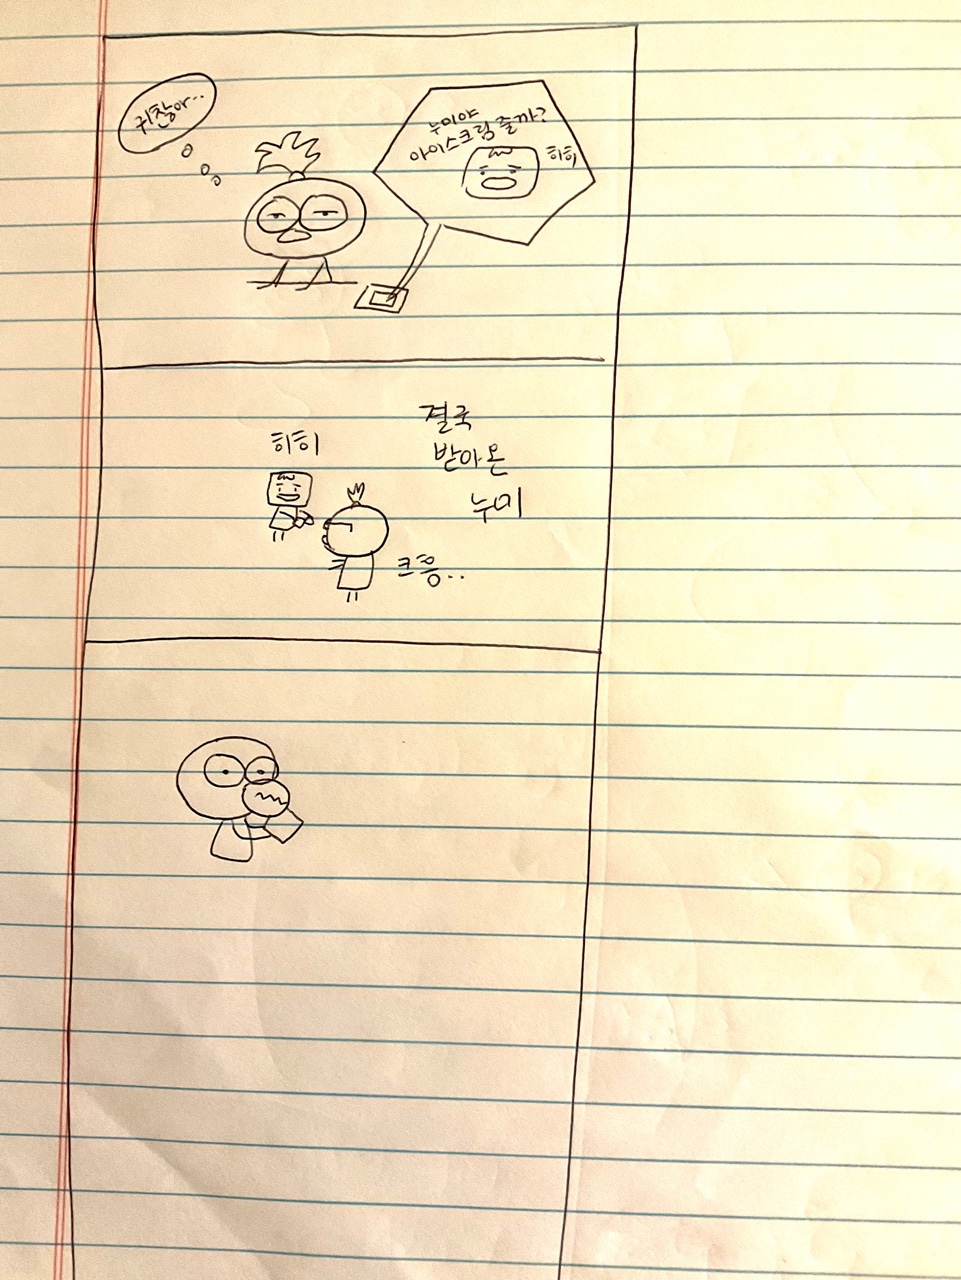 귀찮아..
누미야
아이스크림 줄까?
히히
히히
결국
받아온
누미
크흥..